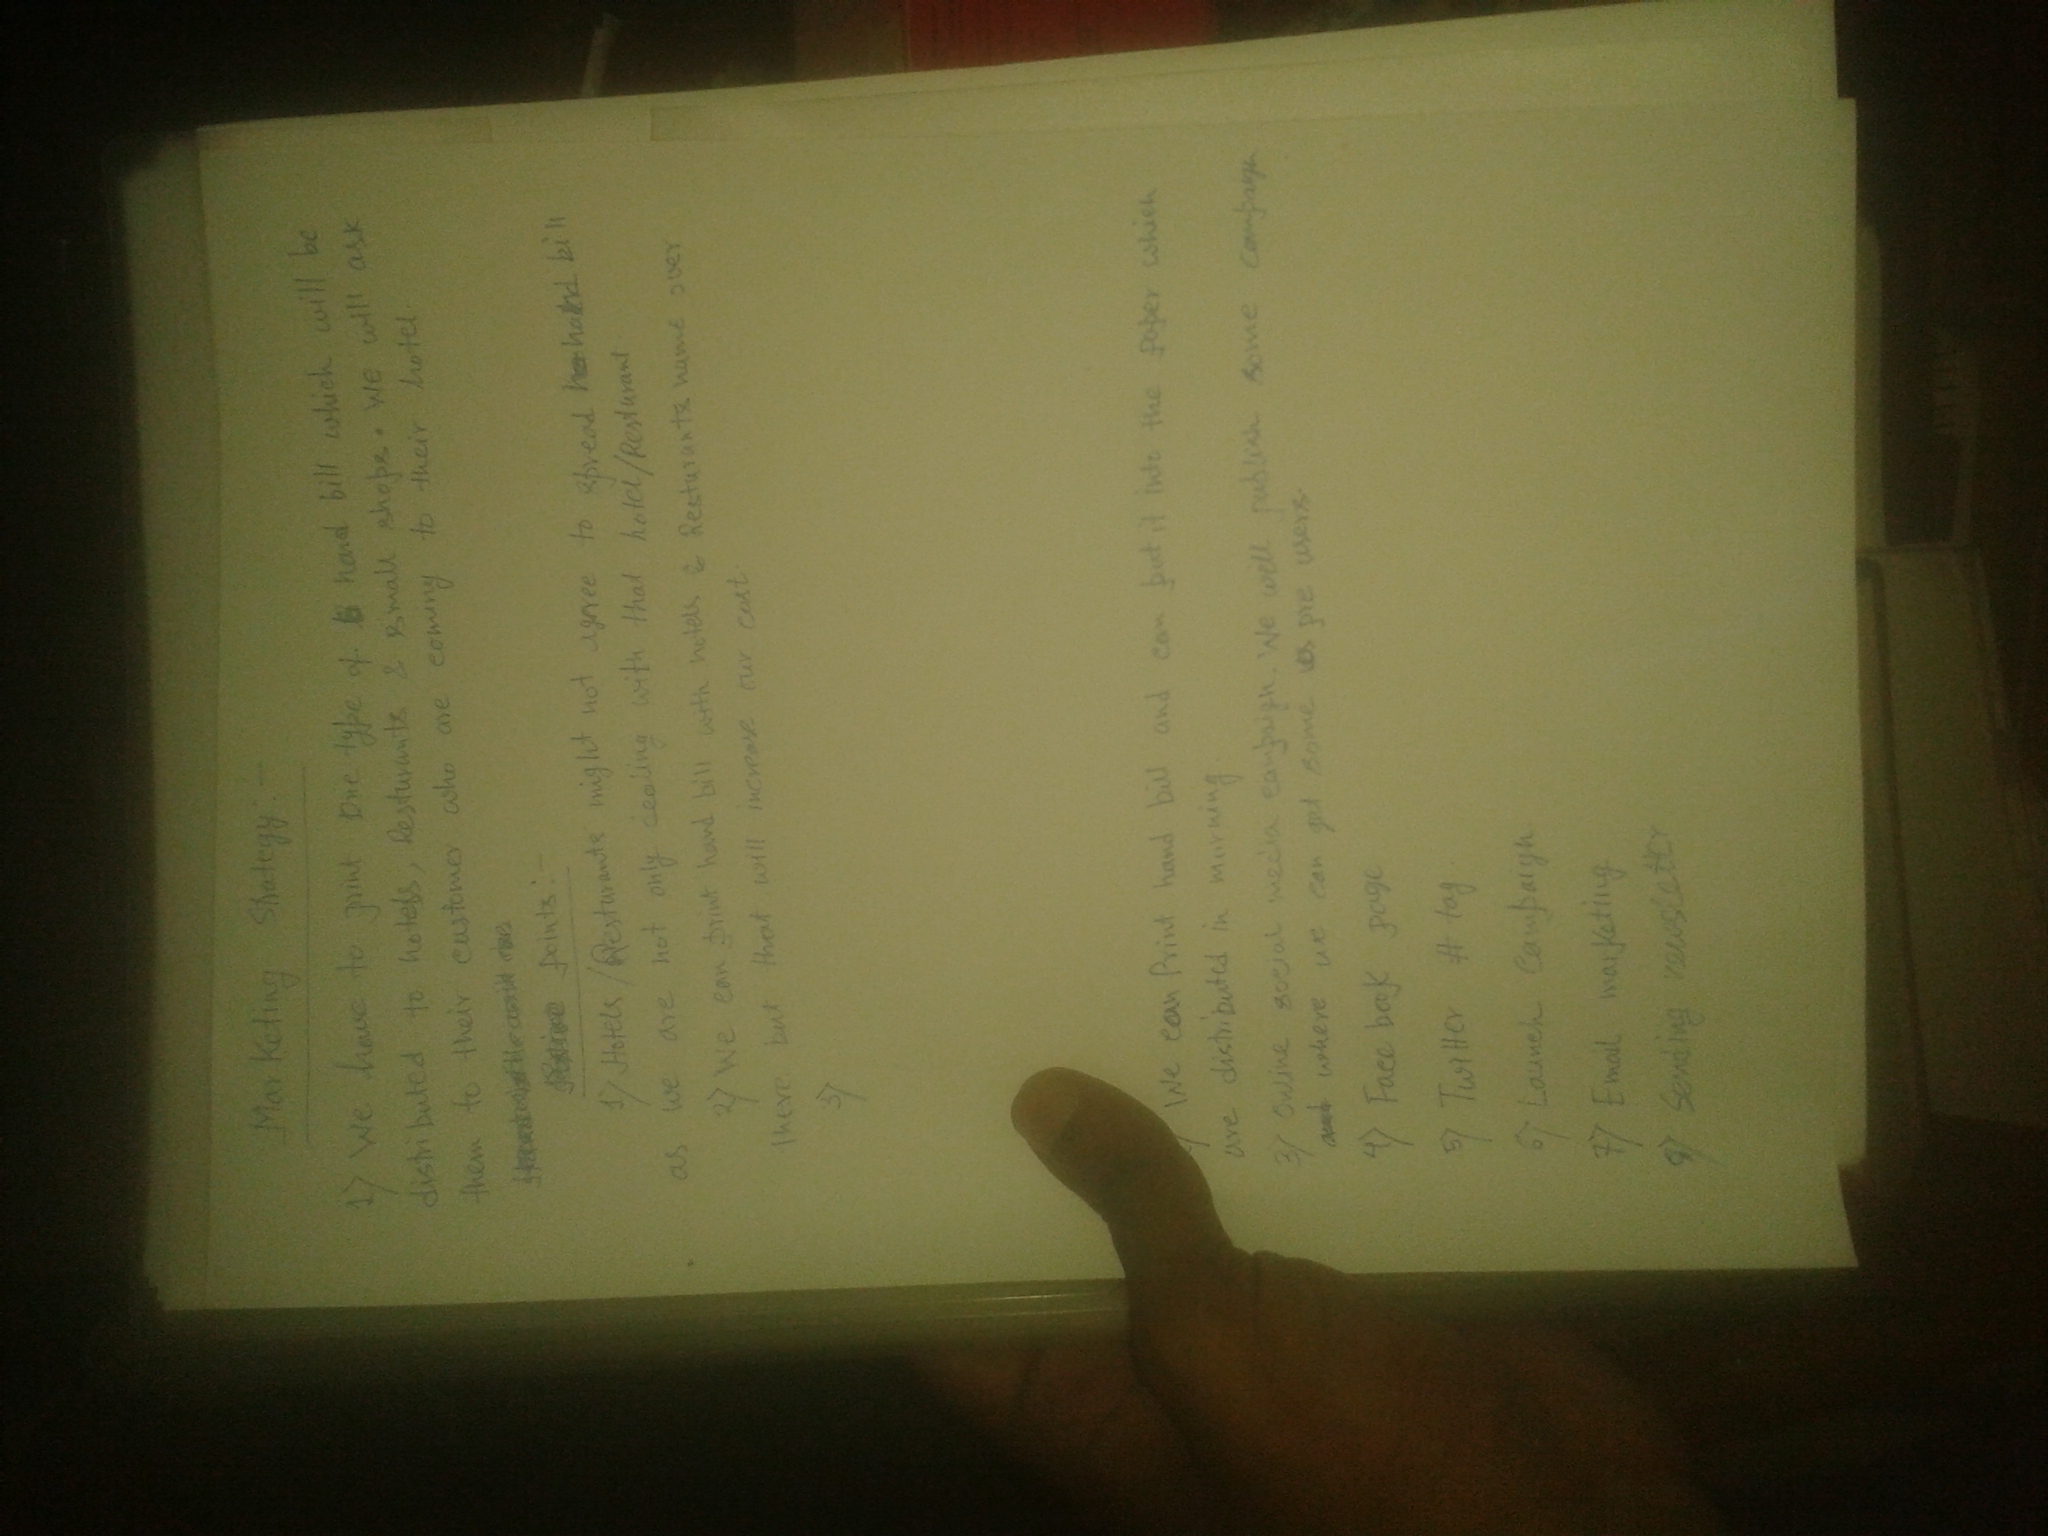 Marketing Strategy:-
1) We have to print one type of hand bill which will be
distributed to hotels, Resturants & small shops. We will ask
them to their customer who are coming to their hotel.
Points:-
1) Hotels/Resturants might not agree to spread hand bill
as we are not only dealing with that hotel/Resturant
2) We can print hand bill with hotels & Resturants name over
there but that will increase our cost.
3)
We can Print hand bill and can put it into the paper which
are distributed in morning.
3) Online social media campaign. We will publish some campaign
where we can get some pre users.
4) Facebook page
5) Twitter # tag.
6) Launch Campaign.
7) Email marketing
8) Sending newsletter